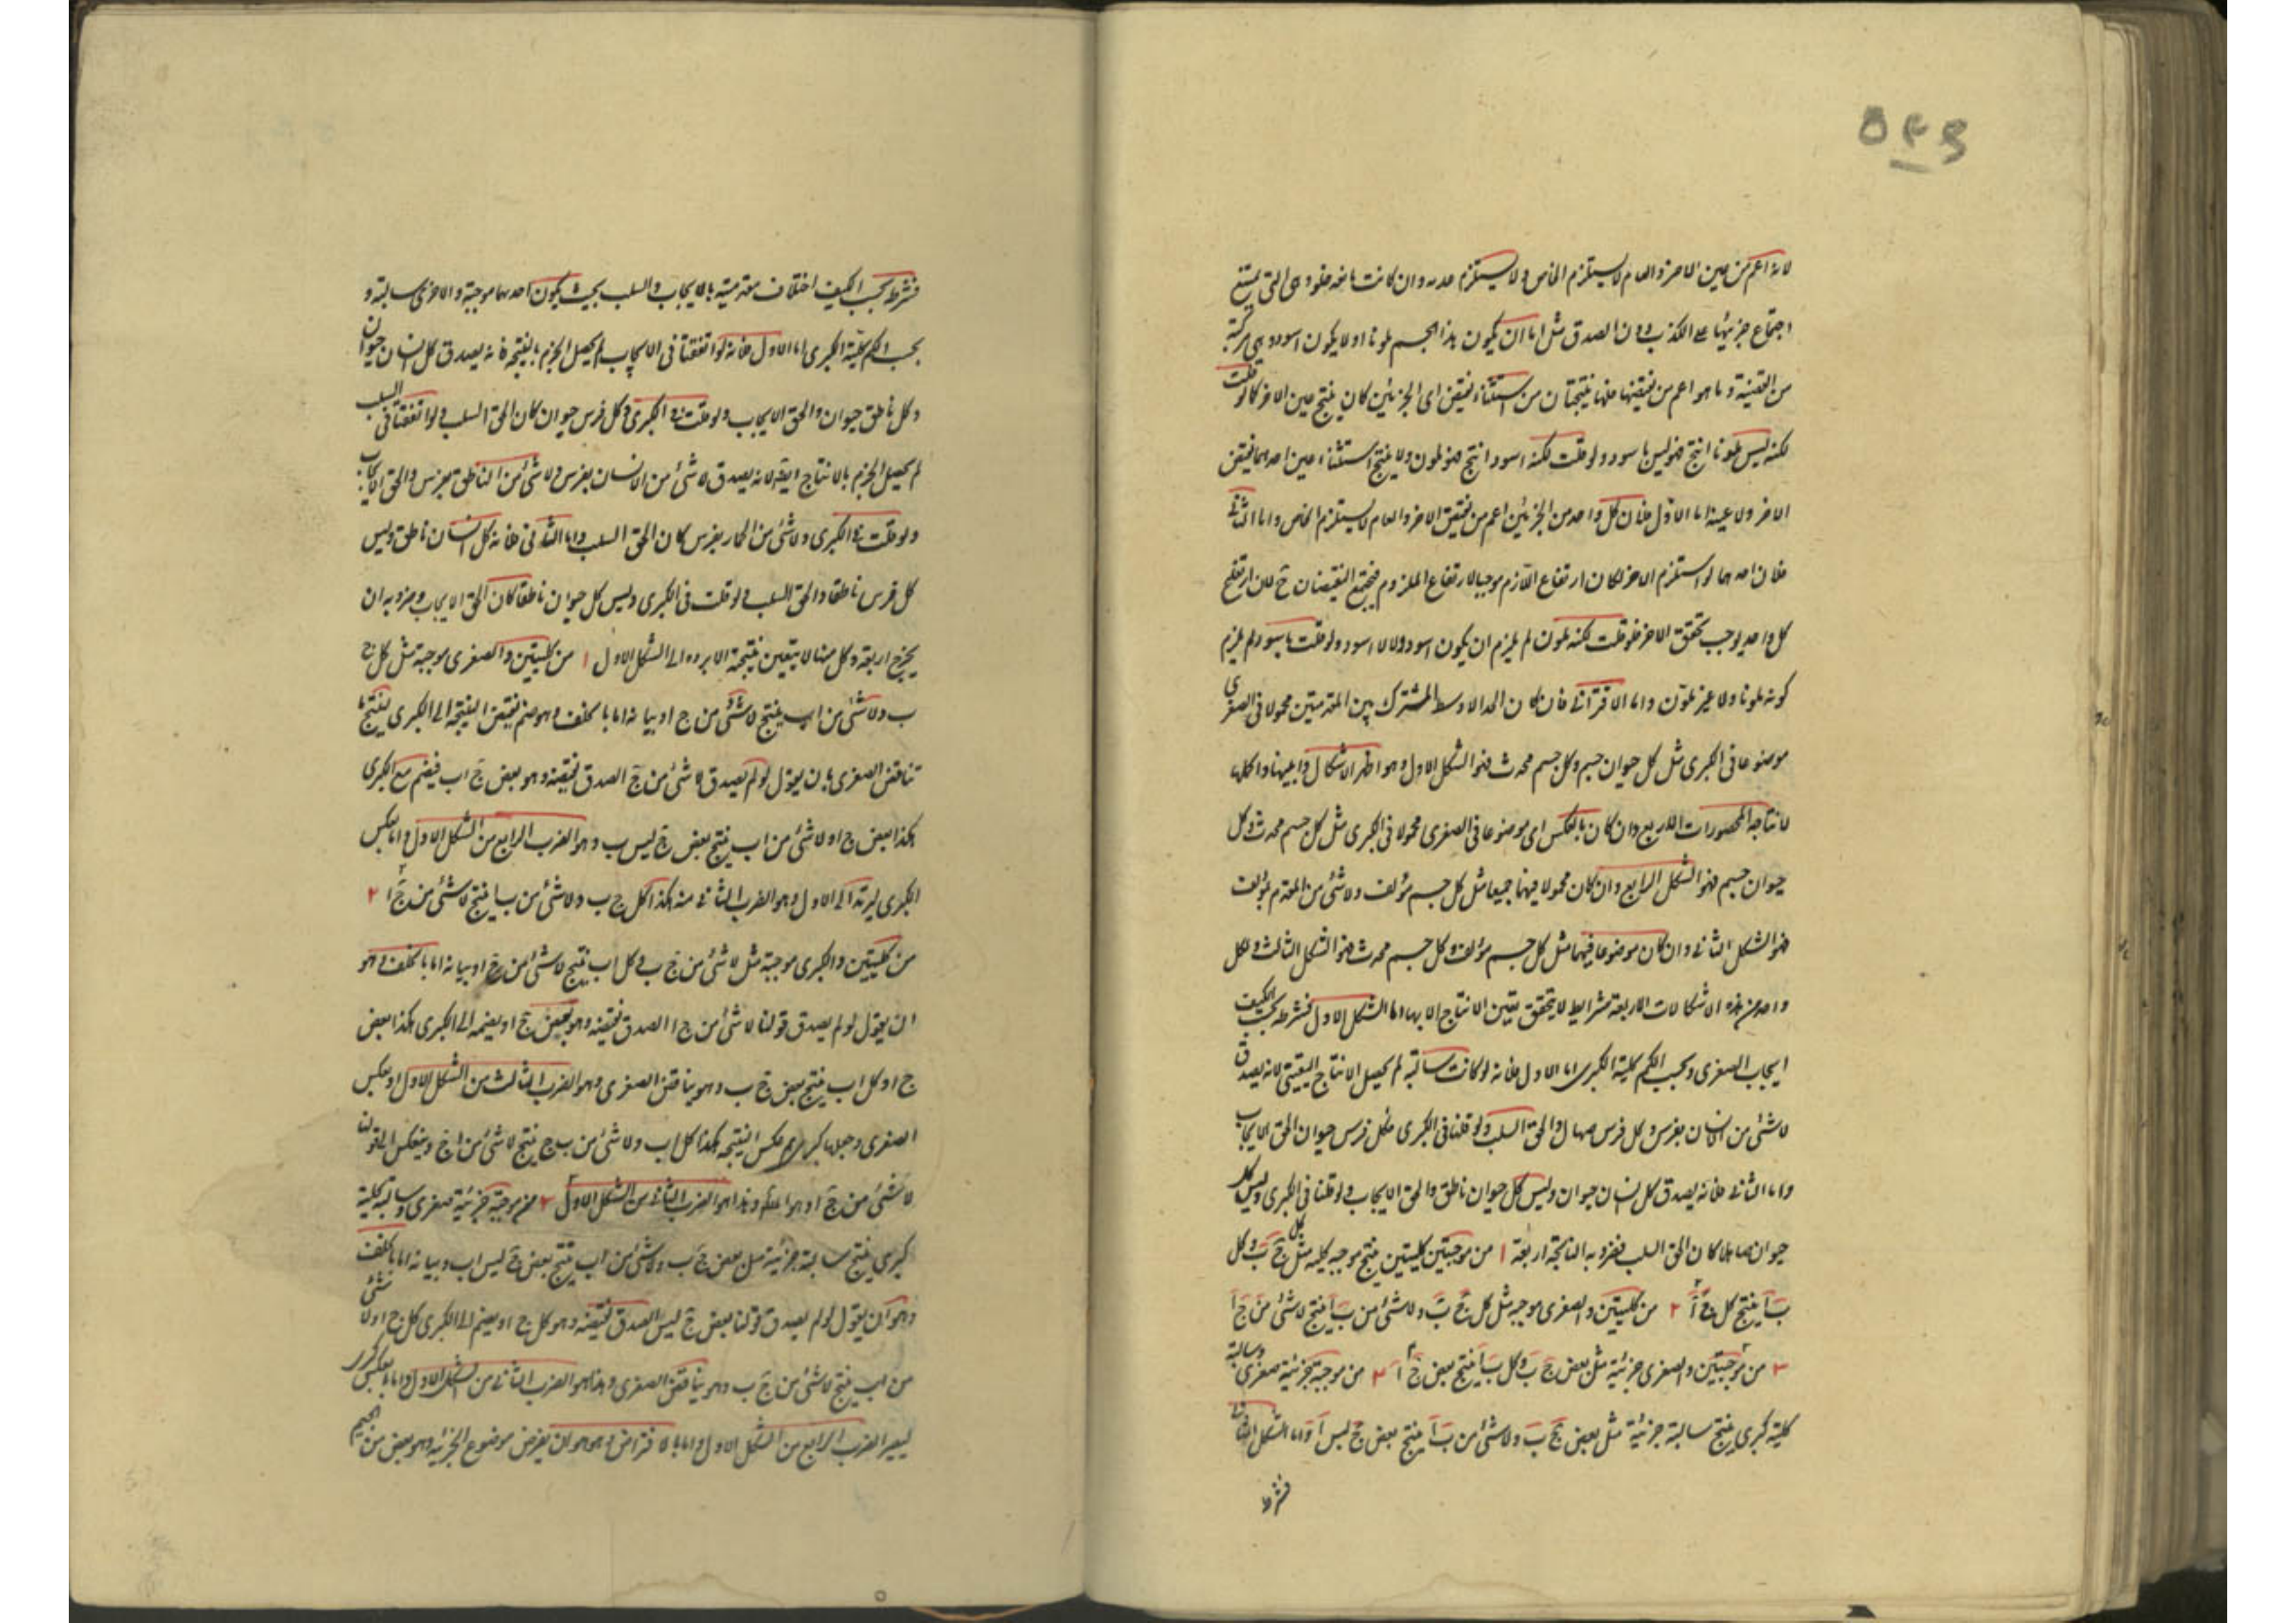 ۵۴۹
لانه اعم من عين الآخر والعام لا يستلزم الخاص ولا يستلزم عدمه وان كانت مانعة خلو وهى التى يمتنع
اجتماع جزئيها على الكذب دون الصدق مثل اما ان يكون هذا الجسم ملونا او لا يكون اسود وهى مركبة
من القضية وما هو اعم من نقيضها فلها نتيجتان من استثناء نقيض اى الجزئين كان ينتج عين الآخر كما لو قلت
لكنه ليس ملونا انتج فهو ليس باسود ولو قلت لكنه اسود انتج فهو ملون ولا ينتج استثناء عين احدهما نقيض
الآخر ولا عينه اما الاول فلان كل واحد من الجزئين اعم من نقيض الآخر والعام لا يستلزم الخاص واما الثانى
فلان احدهما لو استلزم الآخر لكان ارتفاع اللازم موجبا لارتفاع الملزوم فيجتمع النقيضان ح لان ارتفاع
كل واحد يوجب تحقق الآخر فلو قلت لكنه ملون لم يلزم ان يكون اسود ولا لا اسود ولو قلت ليس باسود لم يلزم
كونه ملونا ولا غير ملون واما الاقترانى فان كان الحد الاوسط المشترك بين المقدمتين محمولا فى الصغرى
موضوعا فى الكبرى مثل كل حيوان جسم وكل جسم محدث فهو الشكل الاول وهو اظهر الاشكال وابينها واكملها
لانتاجه المحصورات الاربع وان كان بالعكس اى موضوعا فى الصغرى محمولا فى الكبرى مثل كل جسم محدث وكل
حيوان جسم فهو الشكل الرابع وان كان محمولا فيهما جميعا مثل كل جسم مؤلف ولا شئ من القديم بمؤلف
فهو الشكل الثانى وان كان موضوعا فيهما مثل كل جسم مؤلف وكل جسم محدث فهو الشكل الثالث ولكل
واحد من هذه الاشكالات الاربعة شرايط لا يتحقق يقين الانتاج الا بها اما الشكل الاول فشرطه بحسب الكيف
ايجاب الصغرى وبحسب الكم كلية الكبرى اما الاول فلانه لو كانت سالبة لم يحصل الانتاج اليقينى لانه يصدق
لا شئ من الانسان بفرس وكل فرس صهال والحق السلب ولو قلنا فى الكبرى وكل فرس حيوان الحق الايجاب
واما الثانى فلانه يصدق كل انسان حيوان وليس كل حيوان ناطق والحق الايجاب ولو قلنا فى الكبرى وليس كل
حيوان صاهلا كان الحق السلب فضروبه الناتجة اربعة ۱ من موجبتين كليتين ينتج موجبه كليه مثل كل ج ب وكل
ب ا ينتج كل ج ا ۲ من كليتين والصغرى موجبه مثل كل ج ب ولا شئ من ب ا ينتج لا شئ من ج ا
۳ من موجبتين والصغرى جزئية مثل بعض ج ب وكل ب ا ينتج بعض ج ا ۴ من موجبة جزئية صغرى وسالبة
كلية كبرى ينتج سالبة جزئية مثل بعض ج ب ولا شئ من ب ا ينتج بعض ج ليس ا واما الشكل الثانى
فشرط
فشرط بحسب الكيف اختلاف مقدمتيه بالايجاب والسلب بحيث يكون احدهما موجبة والاخرى سالبة و
بحسب الكم كلية الكبرى اما الاول فلانه لو اتفقتا فى الايجاب لم يحصل الجزم بالنتيجه فانه يصدق كل انسان حيوان
وكل ناطق حيوان والحق الايجاب ولو قلت فى الكبرى وكل فرس حيوان كان الحق السلب ولو اتفقتا فى السلب
لم يحصل الجزم بالانتاج ايضا لانه يصدق لا شئ من الانسان بفرس ولا شئ من الناطق بفرس والحق الايجاب
ولو قلت فى الكبرى ولا شئ من الحمار بفرس كان الحق السلب واما الثانى فلانه كل انسان ناطق وليس
كل فرس ناطقا والحق السلب ولو قلت فى الكبرى وليس كل حيوان ناطقا كان الحق الايجاب وضروبه ان
يخرج اربعة وكل منها لا يتعين نتيجته الا برده الى الشكل الاول ۱ من كليتين والصغرى موجبة مثل كل ج
ب ولا شئ من ا ب ينتج لا شئ من ج ا وبيانه اما بالخلف وهو ضم نقيض النتيجه الى الكبرى لينتج ما
يناقض الصغرى بان يقول لو لم يصدق لا شئ من ج ا لصدق نقيضه وهو بعض ج ا ب فيضم مع الكبرى
هكذا بعض ج ا ولا شئ من ا ب ينتج بعض ج ليس ب وهو الضرب الرابع من الشكل الاول واما بعكس
الكبرى ليرتد الى الاول وهو الضرب الثانى منه هكذا كل ج ب ولا شئ من ب ا ينتج لا شئ من ج ا ۲
من كليتين والكبرى موجبة مثل لا شئ من ج ب وكل ا ب ينتج لا شئ من ج ا وبيانه اما بالخلف وهو
ان يقول لو لم يصدق قولنا لا شئ من ج ا لصدق نقيضه وهو بعض ج ا ويضمه الى الكبرى هكذا بعض
ج ا وكل ا ب ينتج بعض ج ب وهو يناقض الصغرى وهو الضرب الثالث من الشكل الاول او بعكس
الصغرى وجعلها كبرى ثم عكس النتيجه هكذا كل ا ب ولا شئ من ب ج ينتج لا شئ من ا ج وينعكس الى قولنا
لا شئ من ج ا وهو المط وهذا هو الضرب الثانى من الشكل الاول ۳ من موجبة جزئية صغرى وسالبة كلية
كبرى ينتج سالبة جزئية مثل بعض ج ب ولا شئ من ا ب ينتج بعض ج ليس ا ب وبيانه اما بالخلف
وهو ان يقول لو لم يصدق قولنا بعض ج ليس ا لصدق نقيضه وهو كل ج ا ويضم الى الكبرى كل ج ا ولا شئ
من ا ب ينتج لا شئ من ج ب وهو يناقض الصغرى وهذا هو الضرب الثانى من الشكل الاول واما بعكس الكبرى
ليصير الضرب الرابع من الشكل الاول واما بالافتراض وهو هو ان يفرض موضوع الجزئيه وهو بعض من الجيم